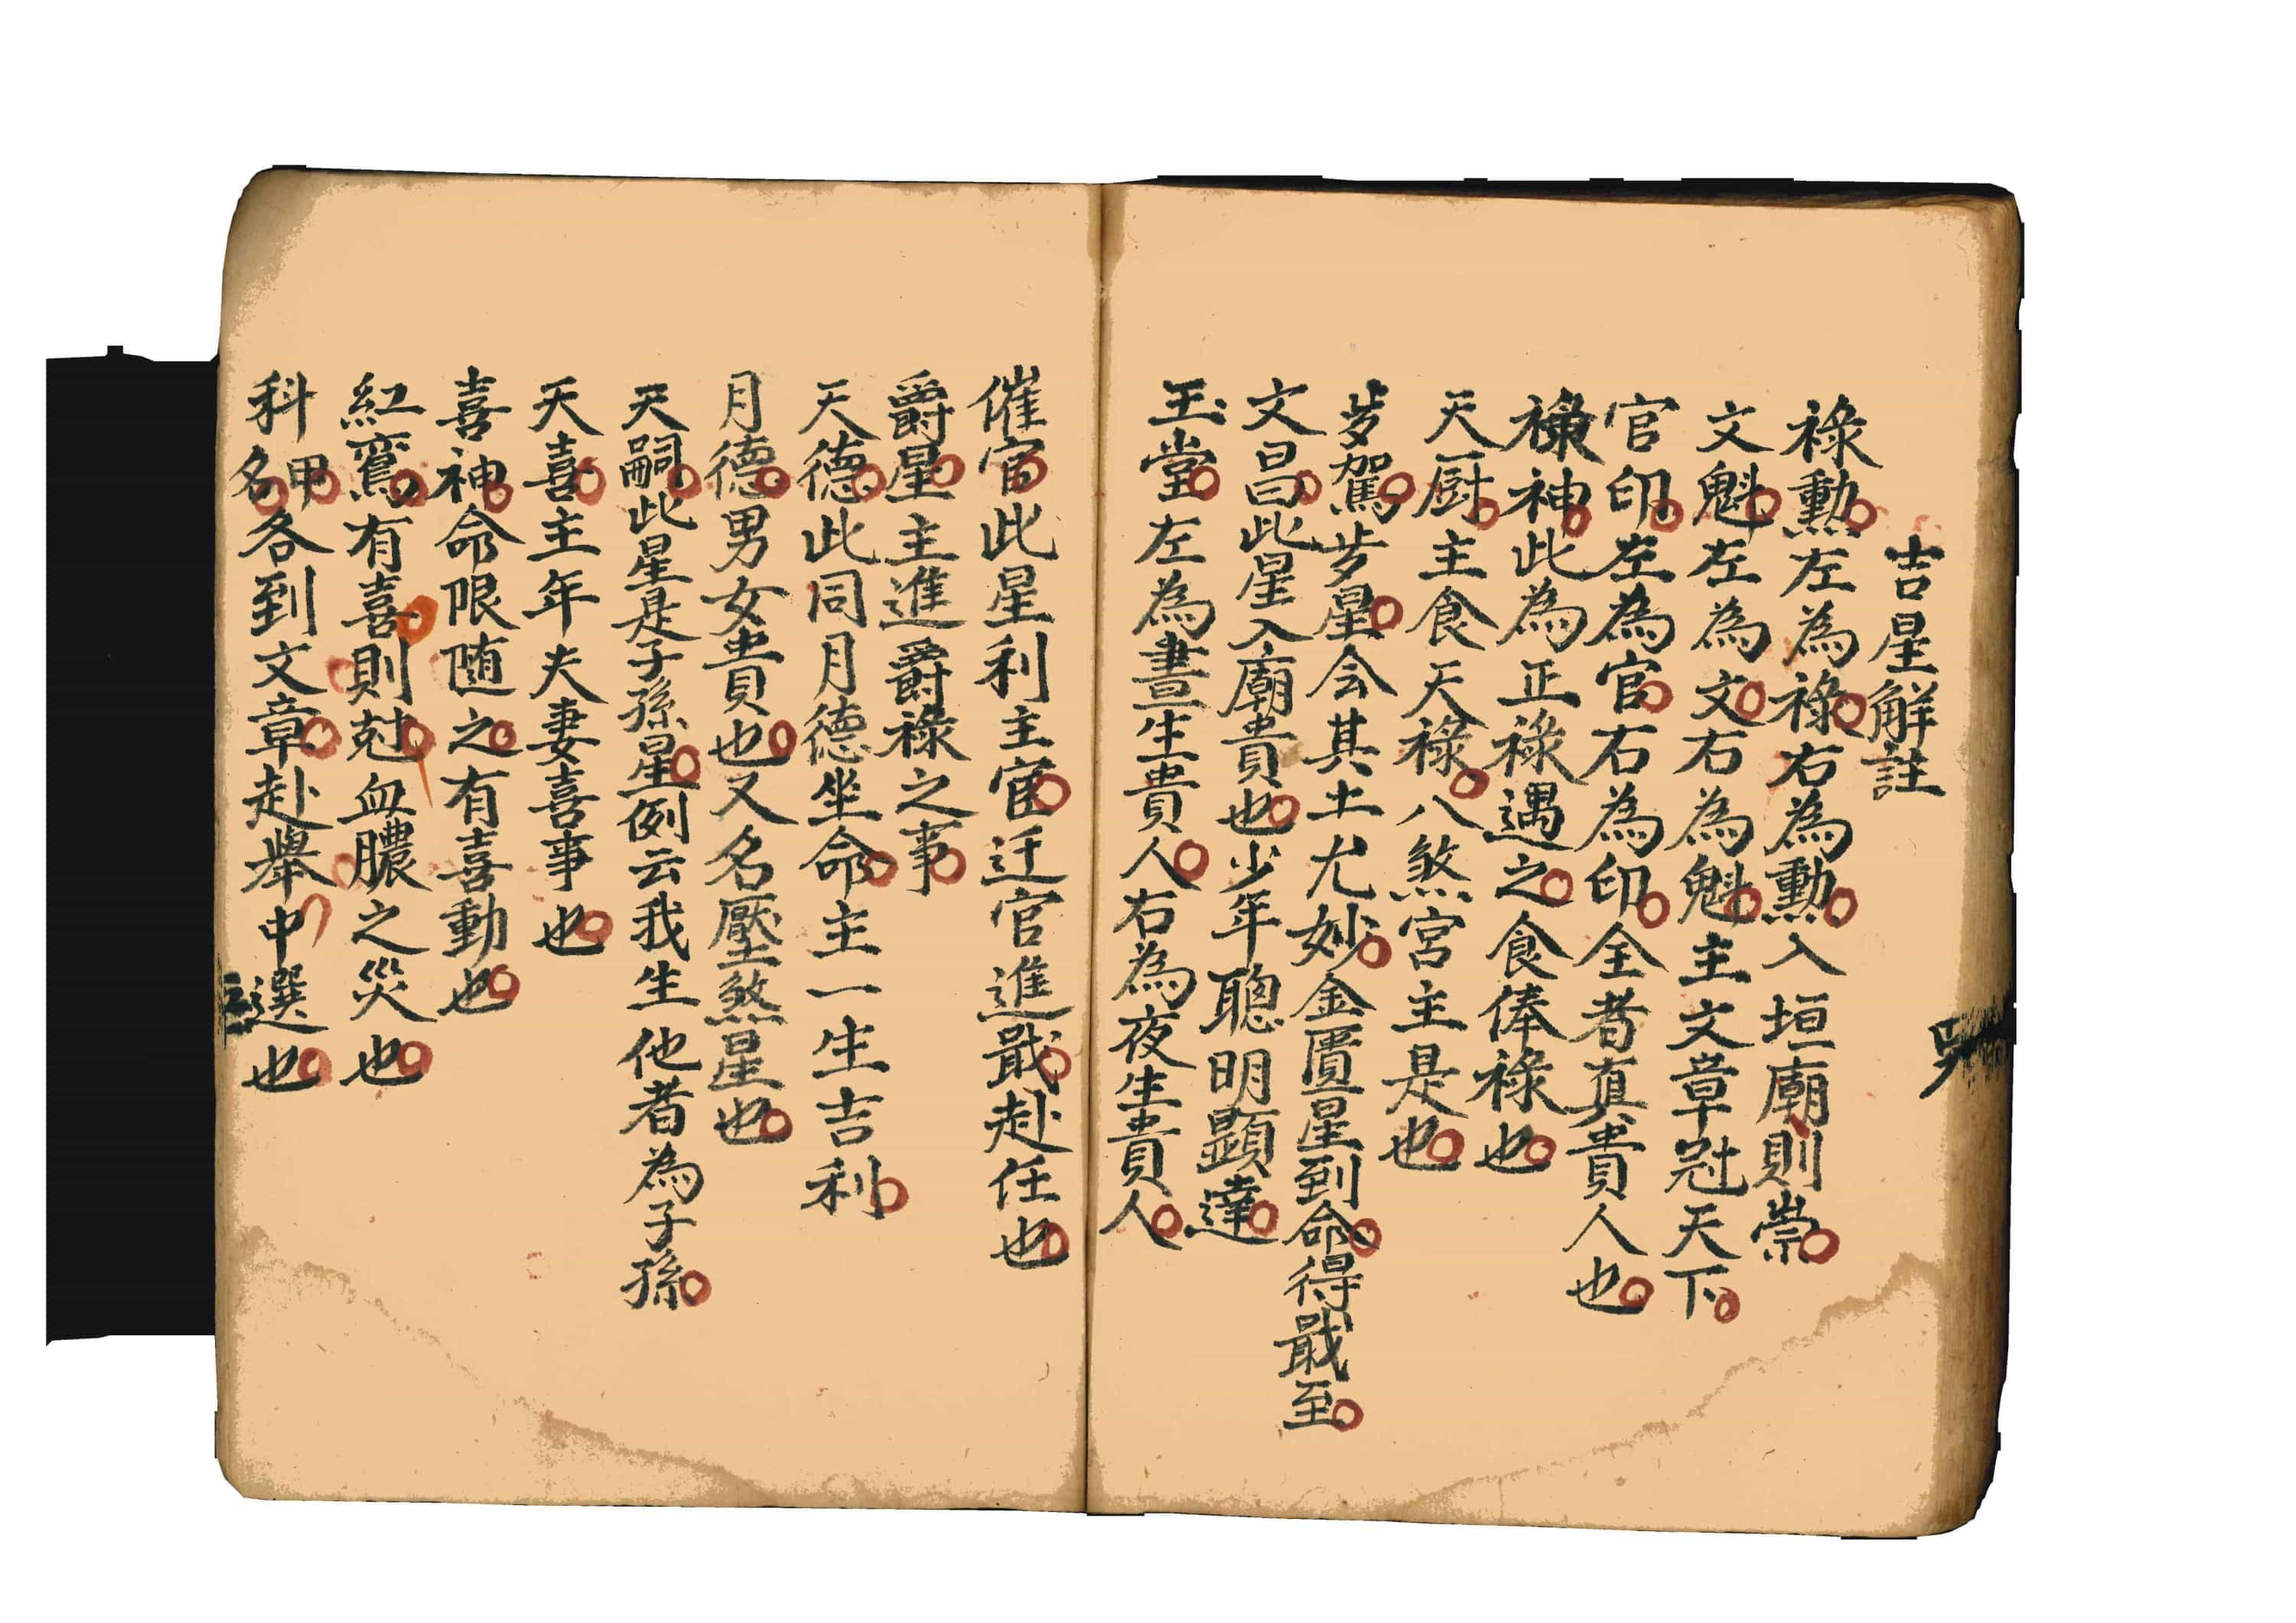 吉星解註
祿勳左為祿右為勳入垣廟則崇
文魁左為文右為魁主文章冠天下
官印左為官右為印全者真貴人也
祿神此為正祿遇之食俸祿也
天厨主食天祿八煞宮主是也
歩駕歩星会其土尤妙金匱星到命得戢至
文昌此星入廟貴也少年聰明顕達
玉堂左為晝生貴人右為夜生貴人
催官此星利主官迁官進戢赴任也
爵星主進爵祿之事
天德此同月德坐命主一生吉利
月德男女貴也又名壓煞星也
天嗣此星是子孫星例云我生他者為子孫
天喜主年夫妻喜事也
喜神命限随之有喜動也
紅鸞有喜則尅血膿之災也
科名科甲各到文章赴舉中選也